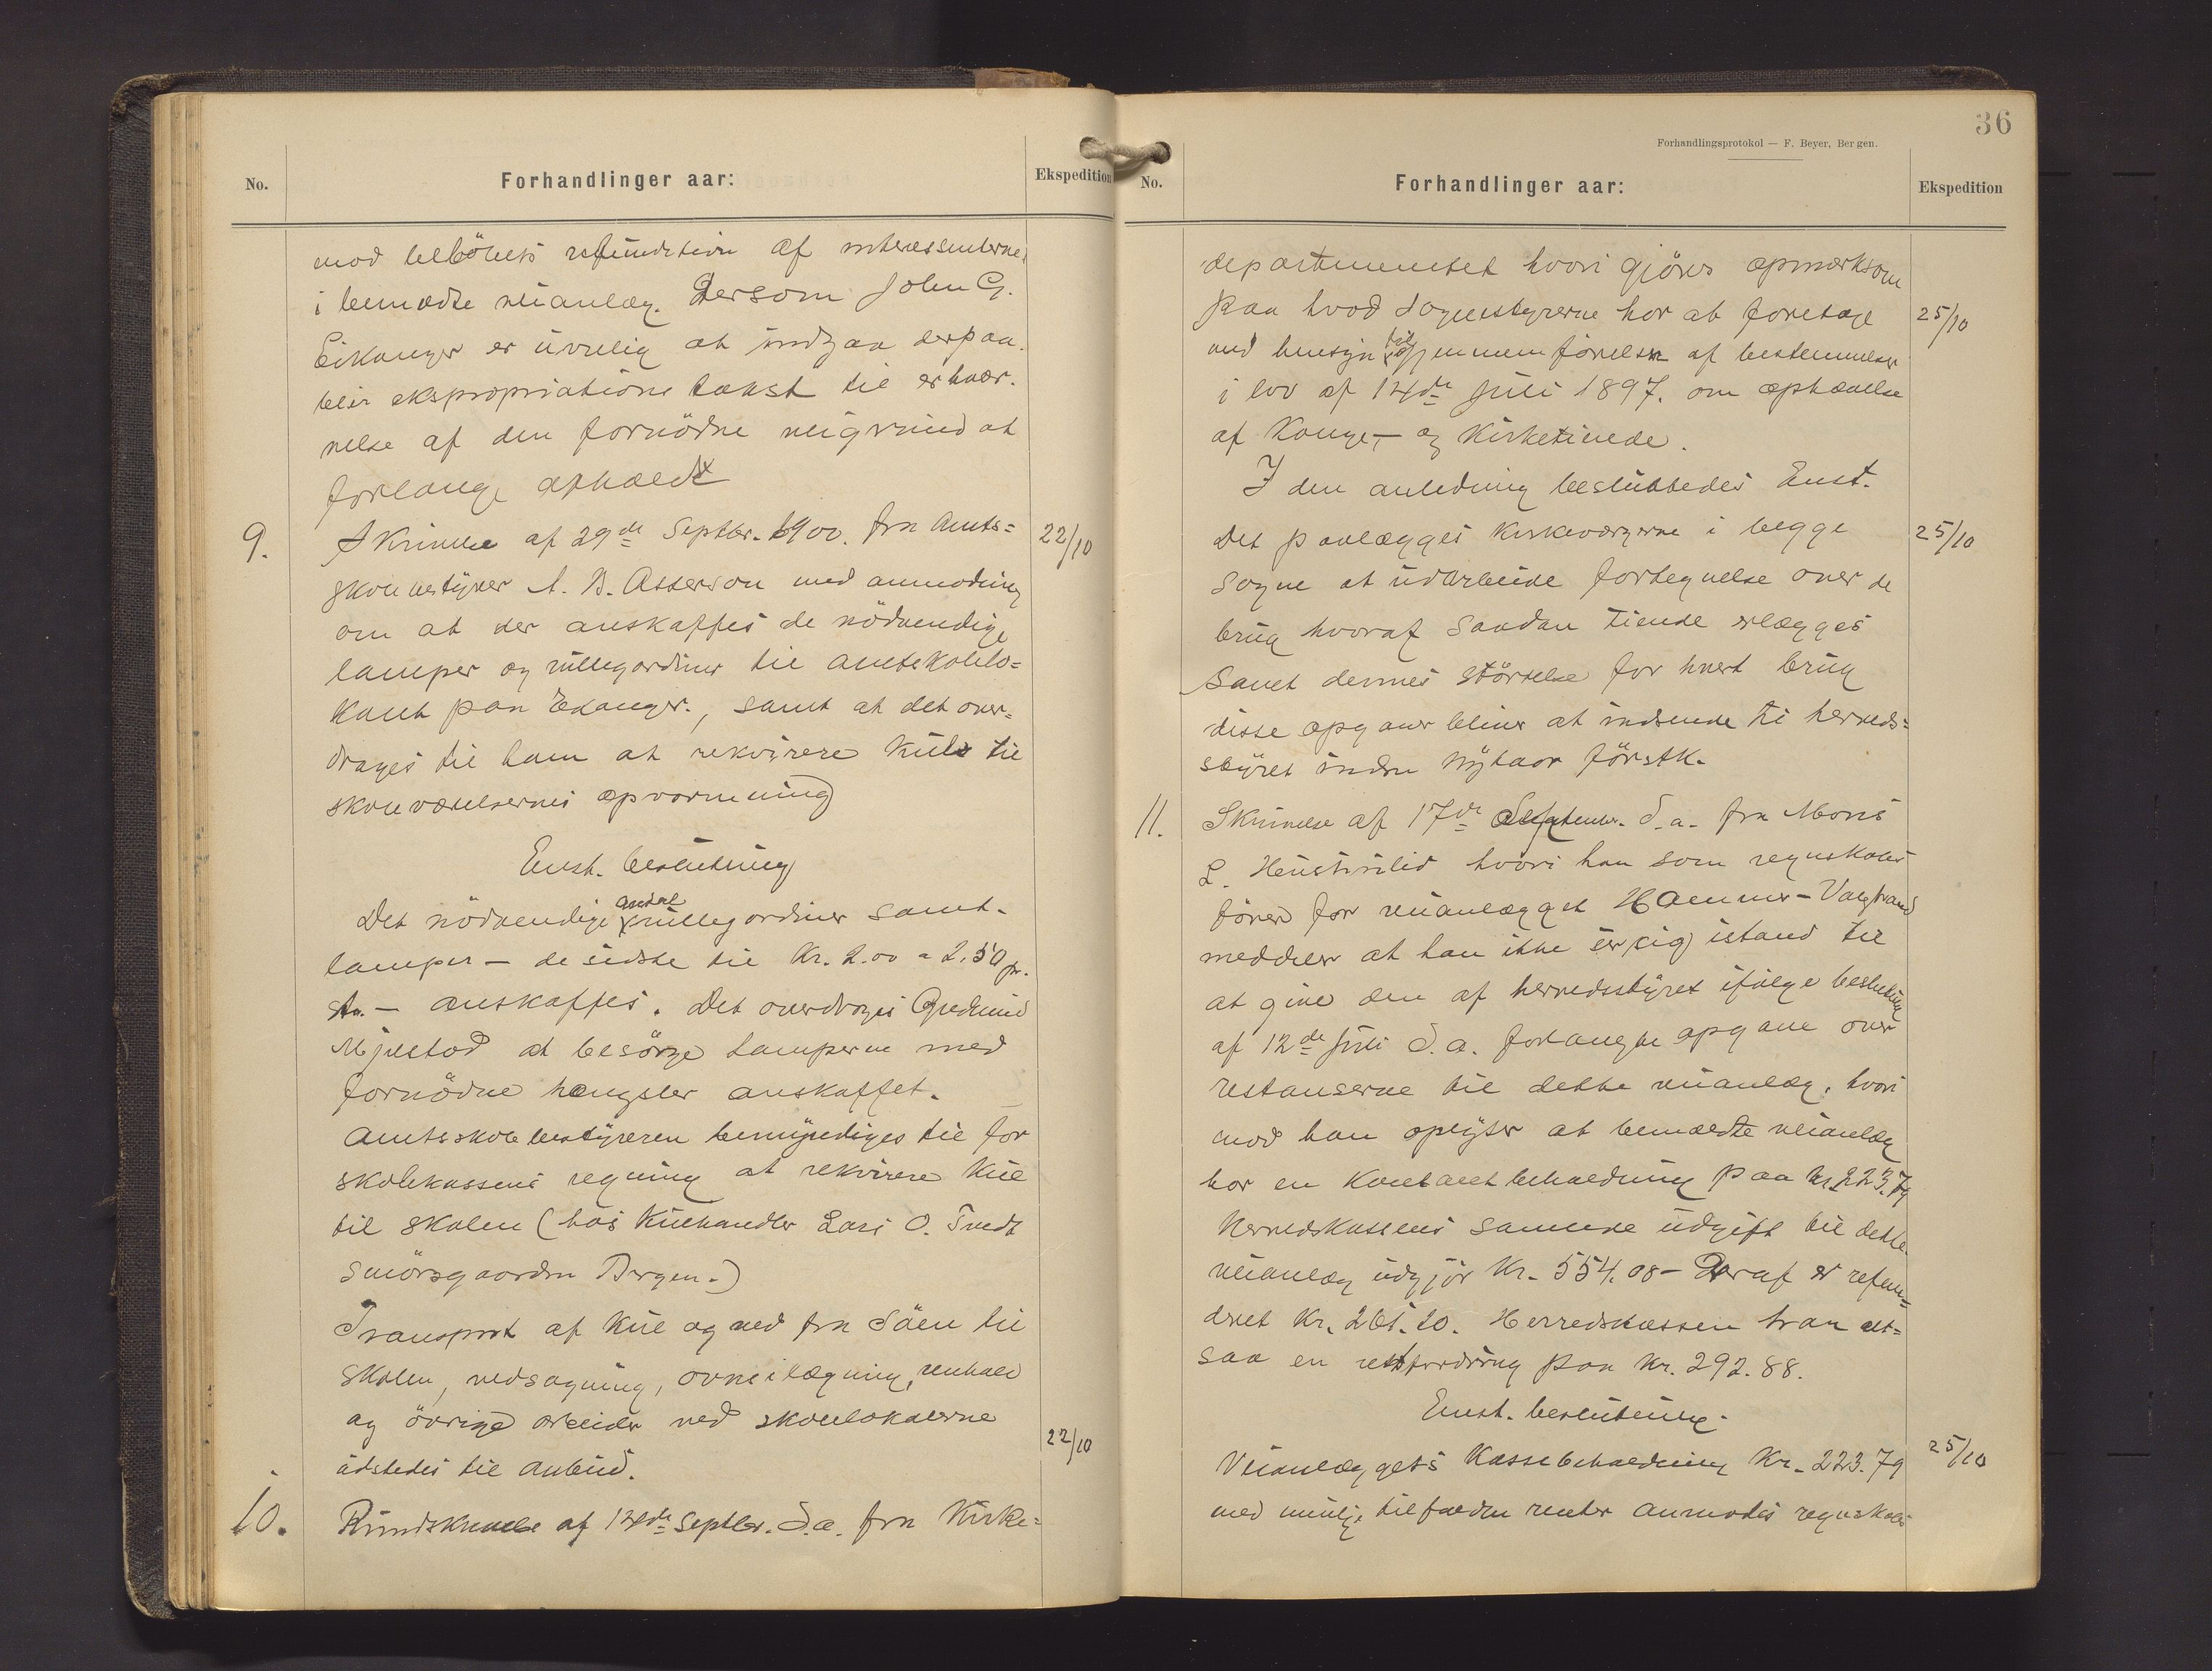 No.
Forhandlinger aar:
Ekspedition
mod beløbets refundation af interessenterne
i bemeldte veianlæg. Dersom John G.
Eikanger er uvillig at indgaa derpaa
blir ekspropriations takst til erhver-
velse af den fornödne veigrund at
forlange afholdt
9.
Skrivelse af 29de Septbr. 1900. fra Amts=
22/10
skolebestyrer A. B. Asserson med anmodning
om at der anskaffes de nödvendige
lamper og rullegardiner til amtskolelo=
kalet paa Ekanger., samt at det over=
drages til ham at rekvirere kul til
skoleværelsernes opvarmning
Enst. beslutning
Det nödvendige antal rullegardiner samt
lamper – de sidste til Kr. 2.00 a 2.50 pr.
st. – anskaffes. Det overdrages Gudmund
Mjelstad at besörge lamperne med
fornödne hengsler anskaffet.
Amtsskolebestyreren bemyndiges til for
skolekassens regning at rekvirere kul
til skolen (hos kulhandler Lars O. Tvedt
Smörsgaarden Bergen.)
Transport af kul og ved fra Söen til
skolen, vedsagning, ovneilægning, renhold
og övrige arbeider ved skolelokalerne
22/10
udstedes til anbud.
10.
Rundskrivelse af 12de Septbr. d.a. fra Kirke=
36
Forhandlingsprotokol — F. Beyer, Bergen.
No.
Forhandlinger aar:
Ekspedition
departementet hvori gjöres opmerksom
paa hvad Sognestyrerne har at foretage
25/10
med hensyn til gjennemförelse af bestemmelser
i lov af 14de Juli 1897. om ophævelse
af Konge- og Kirketiende.
I den anledning besluttedes Enst.
Det paalægges Kirkeværgerne i begge
25/10
Sogne at udarbeide fortegnelse over de
brug hvoraf saadan Tiende erlægges
samt dennes störrelse for hvert brug
disse opgaver bliver at indsende til herreds=
styret inden Nytaar förstk.
11.
Skrivelse af 17de September d.a. fra Mons
L. hvori han som regnskabs
förer for veianlægget Hammer –
meddeler at han ikke ser sig istand til
at give den af herredsstyret ifølge beslutning
af 12de Juli d.a. forlangte opgave over
restanserne til dette veianlæg, hvori
mod han oplyser at bemældte veianlæg
har en Kontant beholdning paa kr. 223.79
Herredskassens samlede udgift til dette
veianlæg udgjör Kr. 554.08 – Deraf er refun=
deret Kr. 261.20. Herredskassen har alt=
saa en restfordring paa Kr. 292.88.
Enst. beslutning.
Veianlæggets Kassebeholdning Kr. 223.79
25/10
med mulige tilfaldne renter anmodes regnskabs